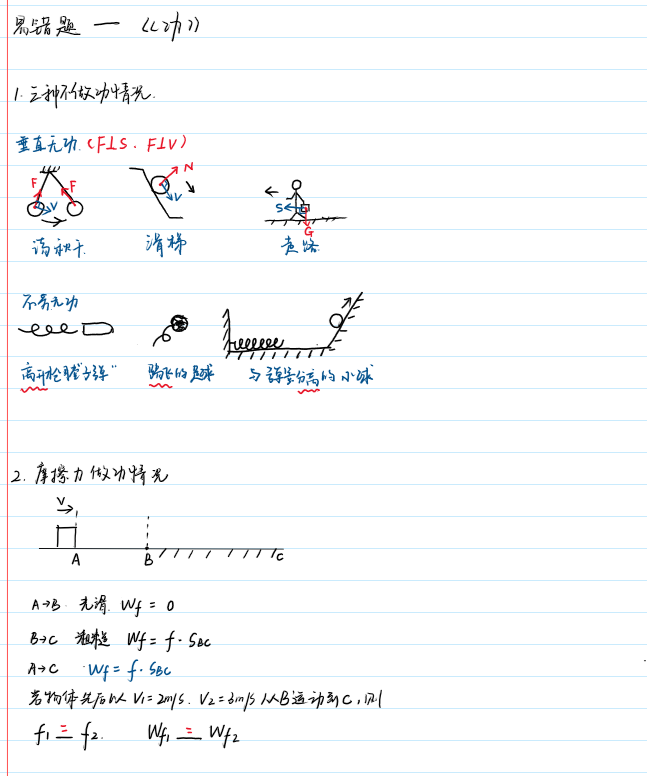 易错题一 《功》
1. 三种不做功情况.
垂直无功. (F⊥S. F⊥V)
F F V
N V
S G
荡秋千. 滑梯 走路
不劳无功
离开枪膛子弹" 踢飞的足球 与弹簧分离的小球
2. 摩擦力做功情况
V
A B C
A→B. 光滑. Wf = 0
B→C 粗糙 Wf = f · SBC
A→C Wf = f · SBC
若物体先后以 V1=2m/s. V2=3m/s 从B运动到C, 则
f1 = f2. Wf1 = Wf2